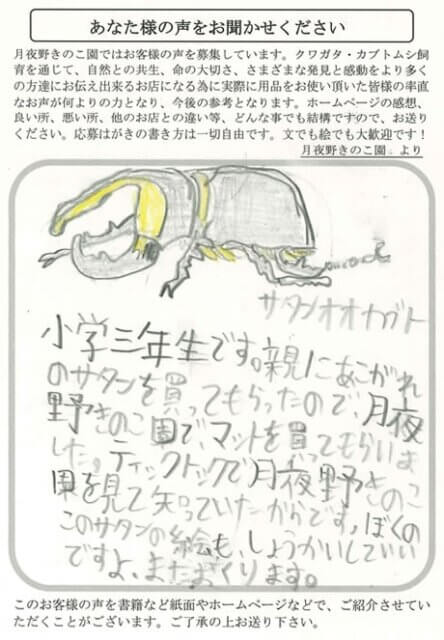 あなた様の声をお聞かせください
月夜野きのこ園ではお客様の声を募集しています。クワガタ・カブトムシ飼
育を通じて、自然との共生、命の大切さ、さまざまな発見と感動をより多く
の方達にお伝え出来るお店になる為に実際に用品をお使い頂いた皆様の率直
なお声が何よりの力となり、今後の参考となります。ホームページの感想、
良い所、悪い所、他のお店との違い等、どんな事でも結構ですので、お送り
ください。応募はがきの書き方は一切自由です。文でも絵でも大歓迎です！
月夜野きのこ園 より
サタンオオカブト
小学三年生です。親にあこがれ
のサタンを買ってもらったので、月夜
野きのこ園で、マットを買ってもらいま
した。ティックトックで月夜野きのこ
園を見て知っていたからです。ぼくの
このサタンの絵も、しょうかいしていい
ですよ、またおくります。
このお客様の声を書籍など紙面やホームページなどで、ご紹介させてい
ただくことがございます。ご了承の上お送り下さい。